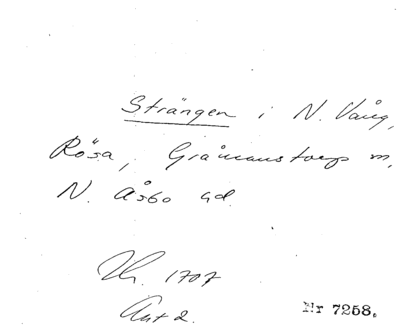 Strängen i N. Vång,
Rösa, Gråmanstorps m,
N. Åsbo hd.
Hr. 1707
Akt 2.
Nr 7258.